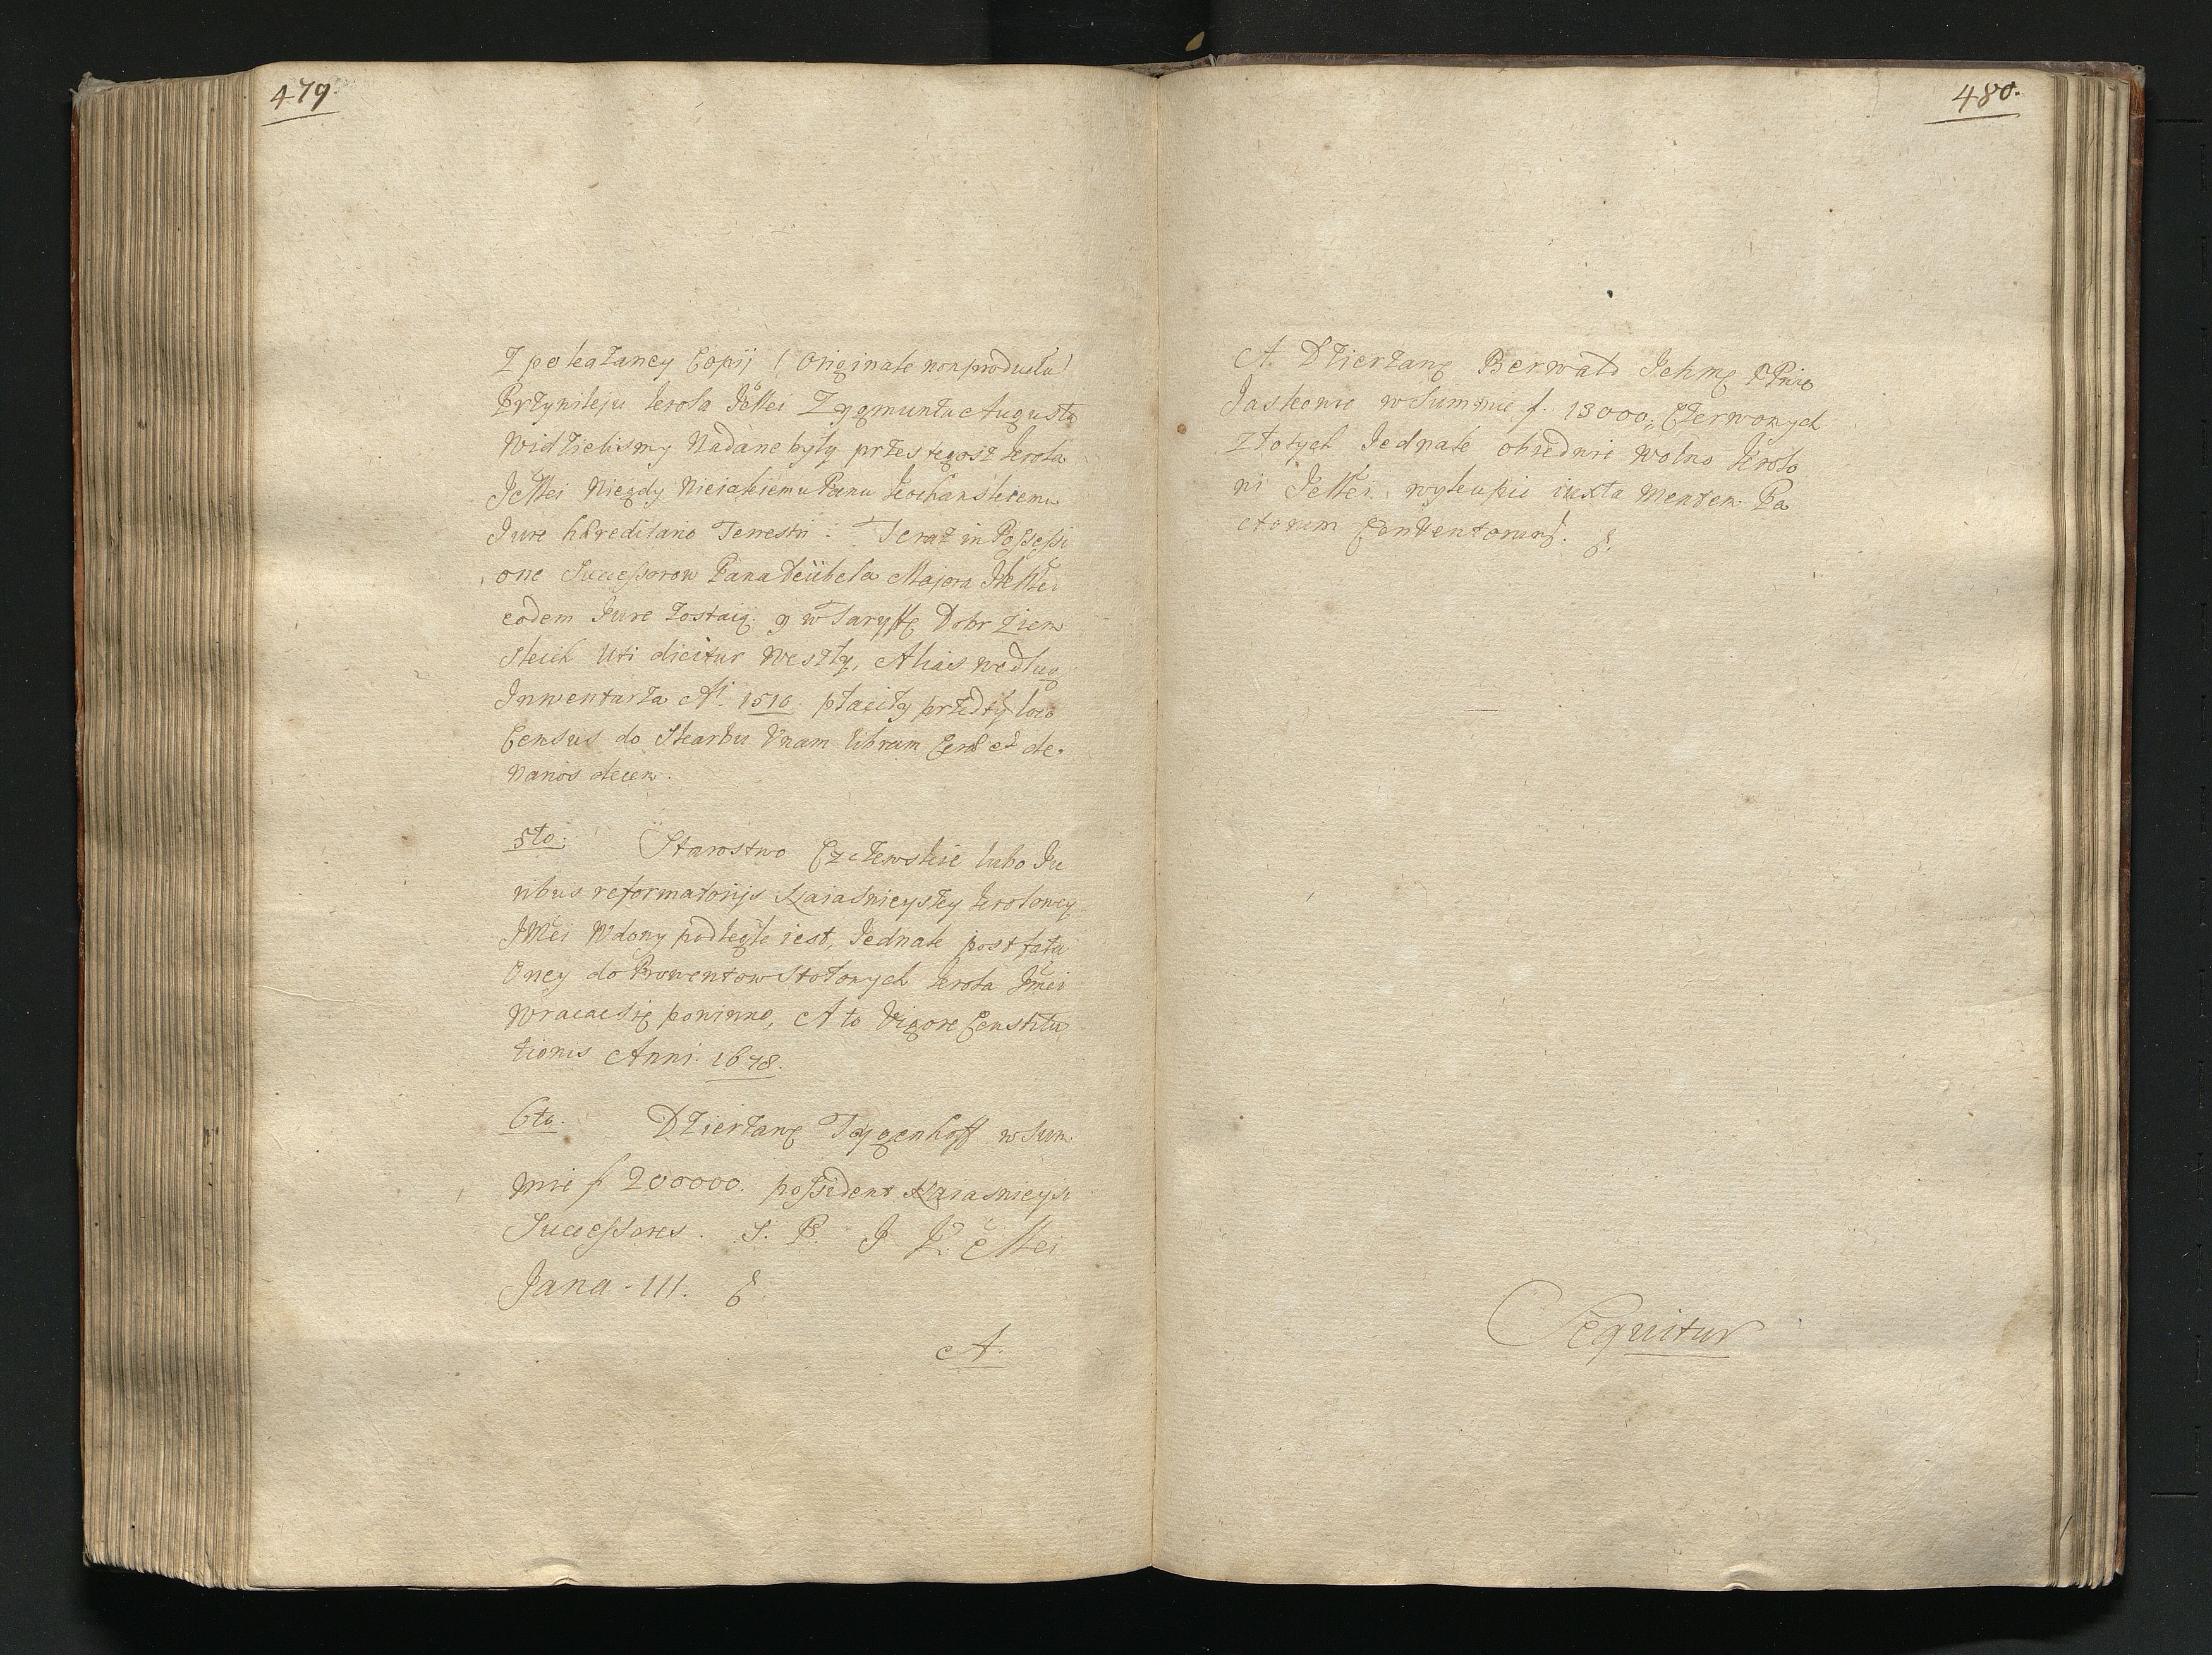 479.
Z pokazaney Copij (Originale non producta)
Przywileju Krola JeMci Zygmunta Augusta
Widzielismy Nadane były przes tegosz Krola
JeMci Niegdy Nieiakiemu Panu Kochanskiemu
Jure haereditario Terrestri. Teraz in Possessi
one Successorow Pana Majora JKMci
eodem Jure zostaią. y w Taryffę Dobr Ziem
skich Uti dicitur Weszły, Alias według
Inwentarza Ai. 1510. płaciły przedtym loco
Census do Skarbu Unam libram Cerae et de.
narios decem.
5to. Starostwo Czczewskie lubo Ju
ribus reformatorijs Naiasnieyszey Krolowey
JMci Wdowy podległe iest, Jednak post fata
Oney do Prowentow Stołowych Krola Jmci
Wracac się powinno, A to Vigore Constitu
tionis Anni. 1678.
6to. Dzierzawę Tygenhoff w Sum
mie f 200000. possident Naiasnieysi
Successores. S. P. J K. Mci
Jana III.
A.
480.
A. Dzierzawę Berwald Jehmę PPnie
Jaskowie w Summie f. 13000,, Czerwonych
Złotych Jednak obiedwie wolno Krolo
wi JeMci wykupic iuxta Mentem Pa
ctorum Conventorum.
Sequitur